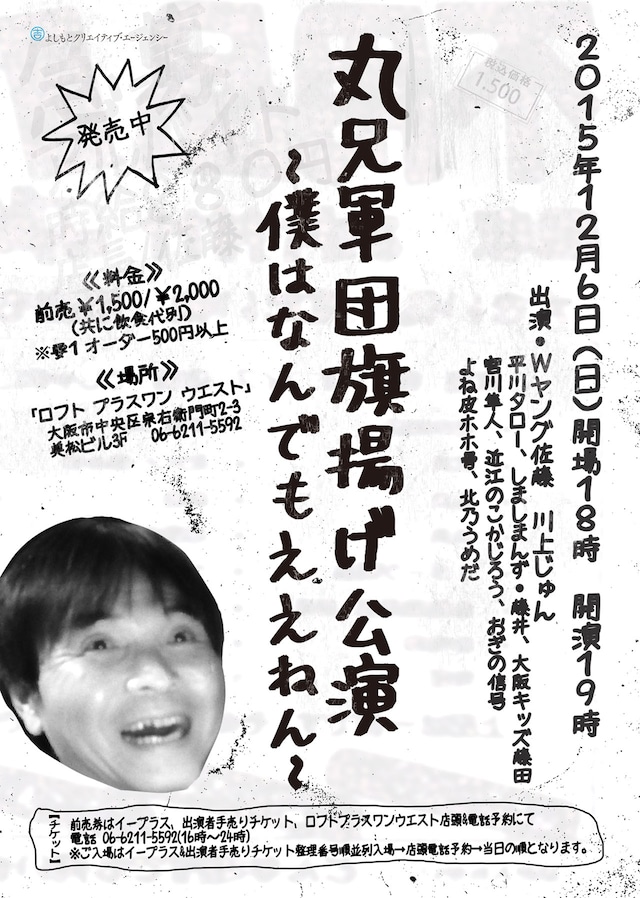 よしもとクリエイティブ・エージェンシー
発売中
税込価格
1.500
2015年12月6日(日)開場18時 開演19時
丸兄軍団旗揚げ公演
~僕はなんでもええねん~
出演・Wヤング佐藤 川上じゅん
平川タロー、しましまんず・藤井、大阪キッズ藤田
宮川隼人、近江のこかじろう、おぎの信号
よね皮ホホ骨、北乃うめだ
《料金》
前売¥1,500/¥2,000
(共に飲食代別)
※要1オーダー500円以上
《場所》
「ロフト プラスワン ウエスト」
大阪市中央区宗右衛門町2-3
美松ビル3F 06-6211-5592
【チケット】
前売券はイープラス、出演者手売りチケット、ロフトプラスワンウエスト店頭&電話予約にて
電話 06-6211-5592(16時~24時)
※ご入場はイープラス&出演者手売りチケット整理番号順並列入場→店頭電話予約→当日の順となります。